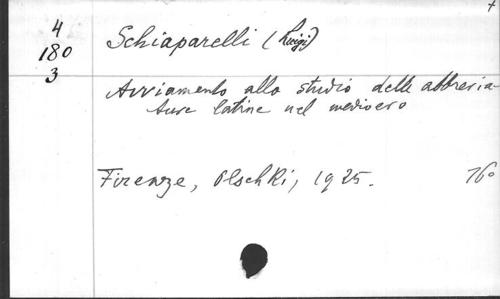 4
180
3
Schiaparelli (Luigi)
Avviamento allo studio delle abbrevia-
ture latine nel medioevo
Firenze, Olschki, 1925.
16°